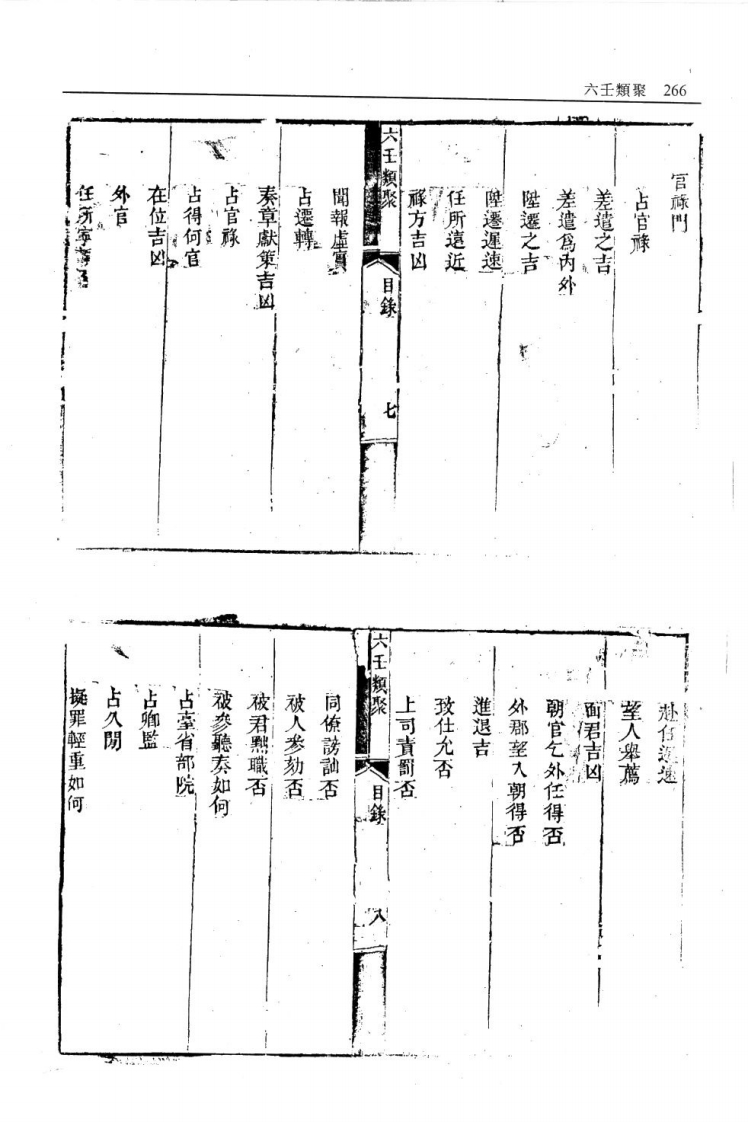 六壬類聚 266
官祿門
占官祿
差遣之吉
差遣爲內外
陞遷之吉
陞遷遲速
任所遠近
祿方吉凶
六壬類聚 目錄 七
聞報虛實
占遷轉
奏章獻策吉凶
占官祿
占得何官
在位吉凶
外官
任所寧
赴任遲速
望人舉薦
面君吉凶
朝官乞外任得否
外郡望入朝得否
進退吉
致仕允否
上司責罰否
六壬類聚 目錄 八
同僚謗訕否
被人參劾否
被君黜職否
被參聽奏如何
占臺省部院
占卿監
占久閒
擬罪輕重如何